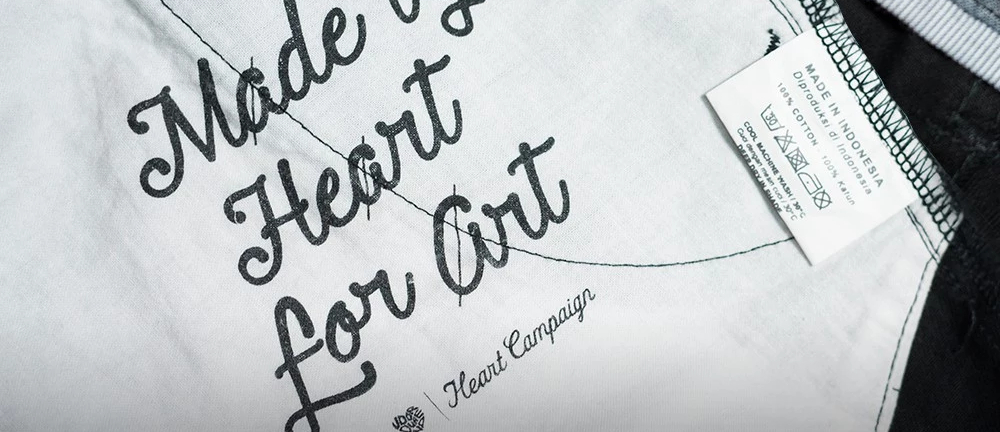 Made
Heart
for Art
Heart Campaign
MADE IN INDONESIA
Diproduksi di Indonesia
100% COTTON 100% Katun
30
COOL MACHINE WASH / 30°C